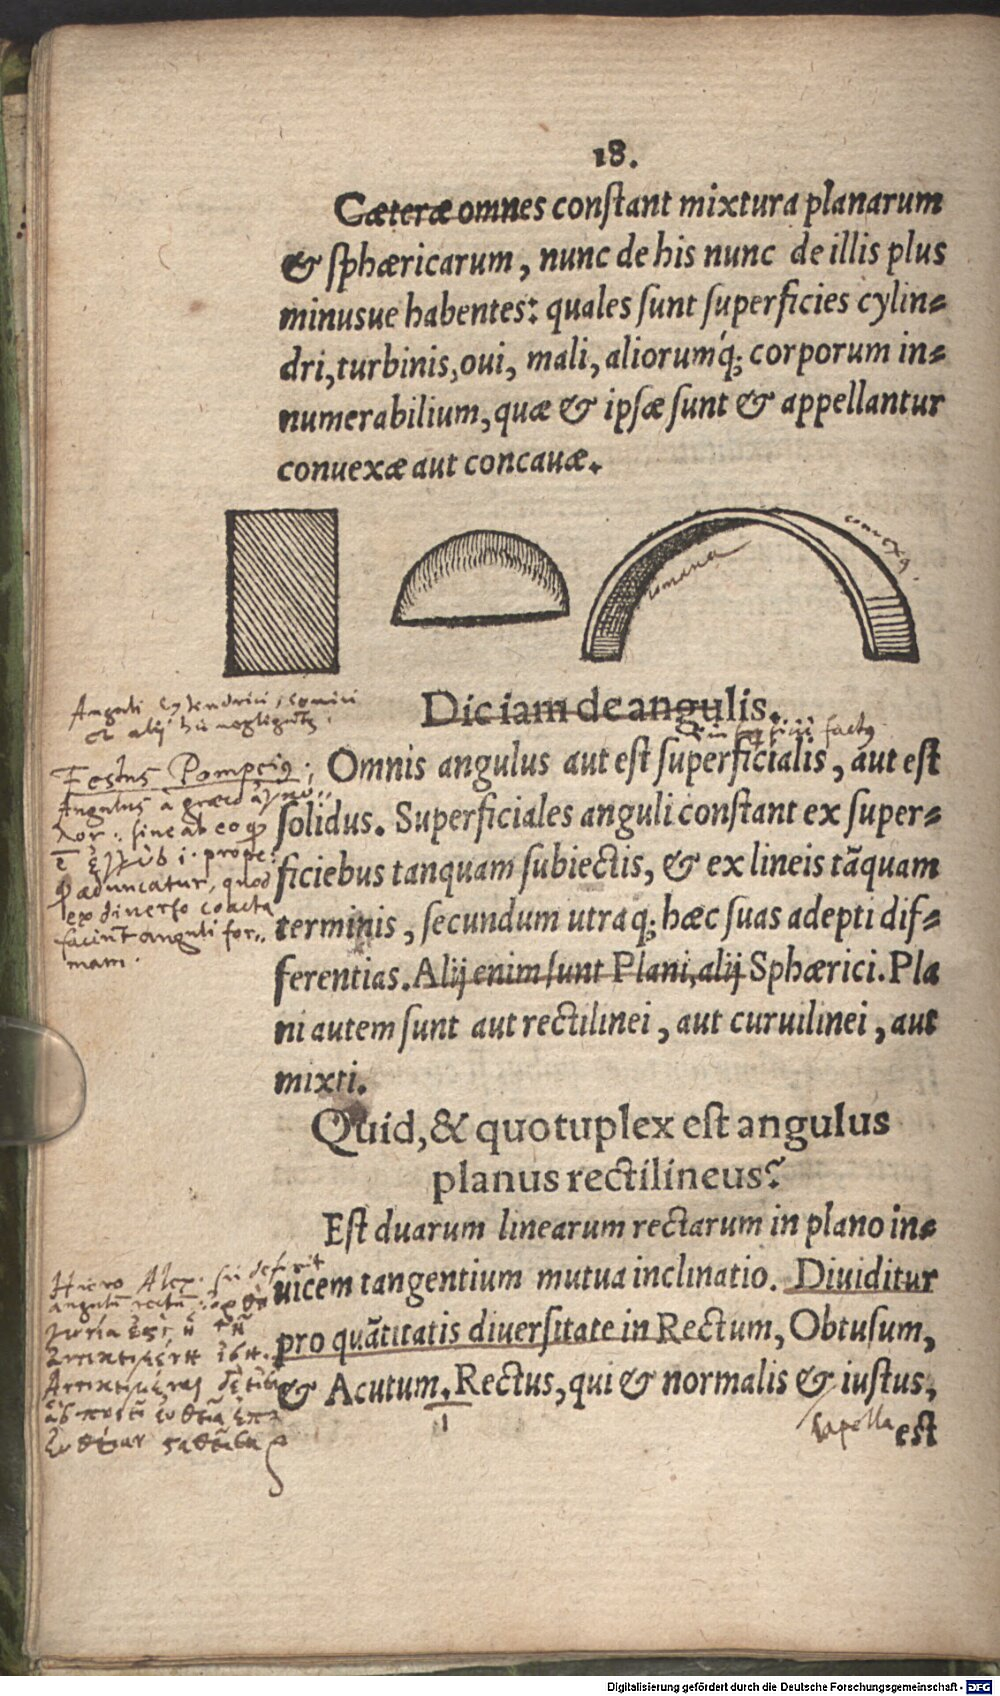 18.
Cæteræ omnes constant mixtura planarum
& sphæricarum, nunc de his nunc de illis plus
minusue habentes: quales sunt superficies cylin=
dri, turbinis, oui, mali, aliorumq́; corporum in=
numerabilium, quæ & ipsæ sunt & appellantur
conuexæ aut concauæ.
conuexa.
Anguli
et alij
Dic iam de angulis.
in factus
Festus Pompeius;
Omnis angulus aut est superficialis, aut est
Angulus à græco
solidus. Superficiales anguli constant ex super=
ficiebus tanquam subiectis, & ex lineis tāquam
aduncatur, quod
terminis, secundum utraq; hæc suas adepti dif=
ex diuerso coacta
faciūt anguli for=
mam.
ferentias. Alij enim sunt Plani, alij Sphærici. Pla
ni autem sunt aut rectilinei, aut curuilinei, aut
mixti.
Quid, & quotuplex est angulus
planus rectilineus?
Est duarum linearum rectarum in plano in=
Hiero Alex. sic definit
uicem tangentium mutua inclinatio. Diuiditur
angulū rectū
pro quātitatis diuersitate in Rectum, Obtusum,
& Acutum. Rectus, qui & normalis & iustus,
1
Capella
est
Digitalisierung gefördert durch die Deutsche Forschungsgemeinschaft - DFG